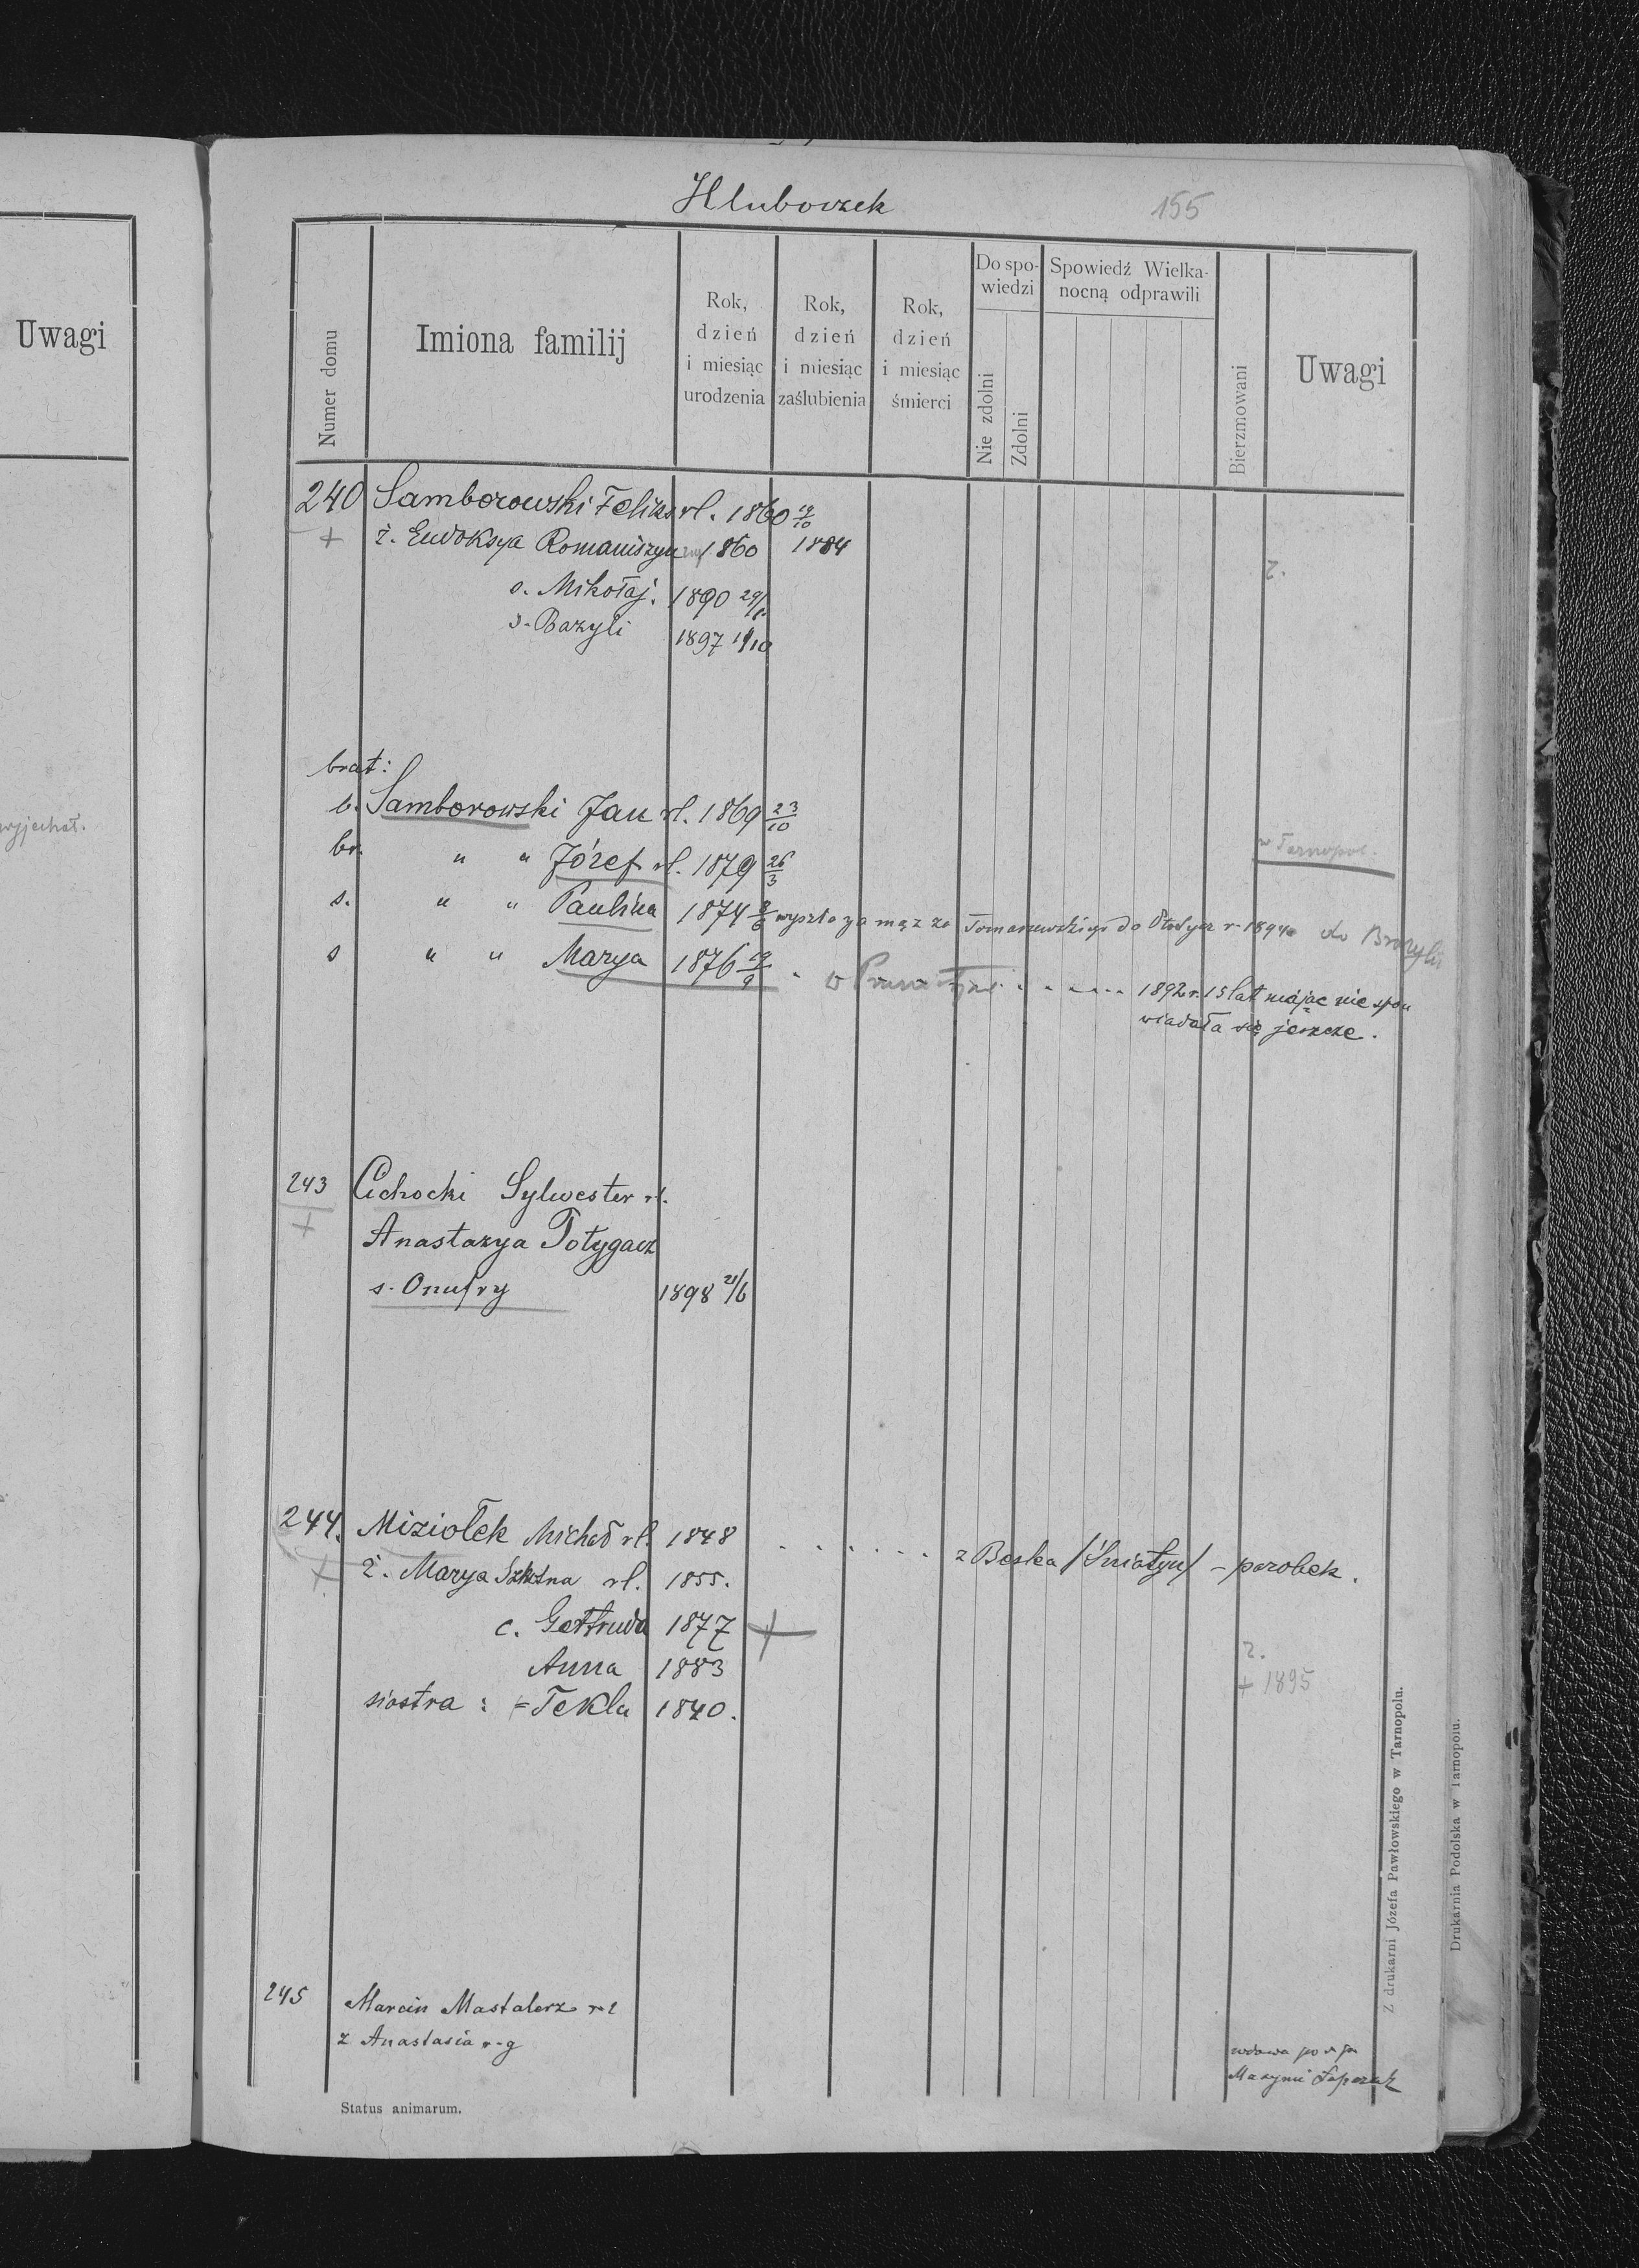 Uwagi
wyjechał.
Hluboczek
155
Numer domu
Imiona familij
Rok, dzień i miesiąc urodzenia
Rok, dzień i miesiąc zaślubienia
Rok, dzień i miesiąc śmierci
Do spowiedzi
Nie zdolni
Zdolni
Spowiedź Wielkanocną odprawili
Bierzmowani
Uwagi
240 Samborowski Feliks rl. 1860 19/10
+ ż. Eudoksya Romaniszyn 1860 1884
s. Mikołaj. 1890 29/8
s. Bazyli 1897 11/10
brat:
b. Samborowski Jan rl. 1869 23/10
br. " " Józef rl. 1879 26/3 w Tarnopol.
s. " " Paulina 1874 8/6 wyszła za mąż za Tomaszewskiego do r. 1894 do Brazylii
s " " Marya 1876 9/9 w 1892 r. 15 lat mając nie spo
wiadała się jeszcze.
243 Cichocki Sylwester rl.
+ Anastazya Potygacz
s. Onufry 1898 21/6
244. Miziołek Michał rl. 1848 z Beska /Śniatyn/ - parobek.
+ ż. Marya rl. 1855.
c. Gertruda 1877 +
Anna 1883 + 1895
siostra: = Tekla 1840.
245 Marcin Mastalerz rl
ż Anastasia r-g wdowa po
Status animarum.
Z drukarni Józefa Pawłowskiego w Tarnopolu.
Drukarnia Podolska w Tarnopolu.